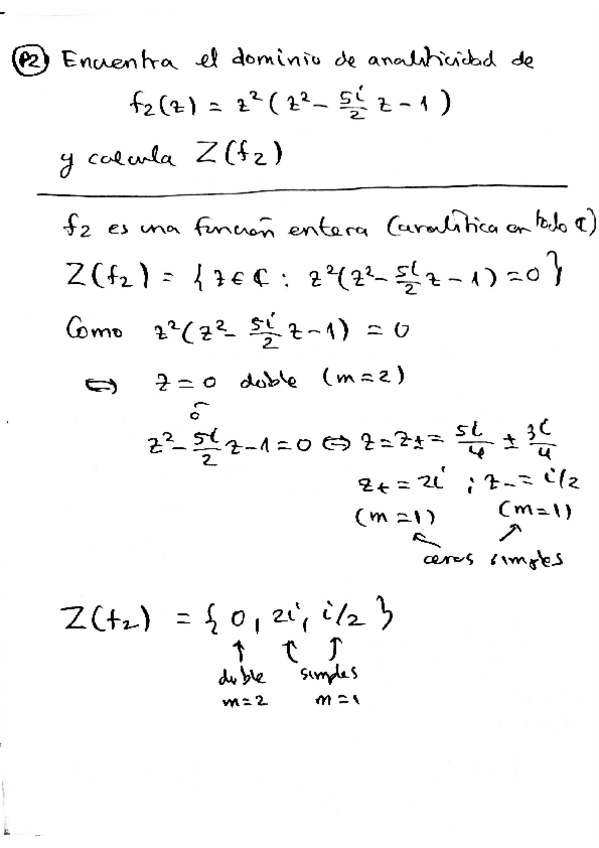 P2 Encuentra el dominio de analiticidad de
f₂(z) = z²(z² - 5i/2 z - 1)
y calcula Z(f₂)
f₂ es una función entera (analítica en todo ℂ)
Z(f₂) = { z ∈ ℂ : z²(z² - 5i/2 z - 1) = 0 }
Como z²(z² - 5i/2 z - 1) = 0
⇔ z = 0 doble (m = 2)
ó
z² - 5i/2 z - 1 = 0 ⇔ z = z± = 5i/4 ± 3i/4
z+ = 2i ; z- = i/2
(m = 1) (m = 1)
ceros simples
Z(f₂) = { 0, 2i, i/2 }
↑ ↑ ↑
doble simples
m = 2 m = 1